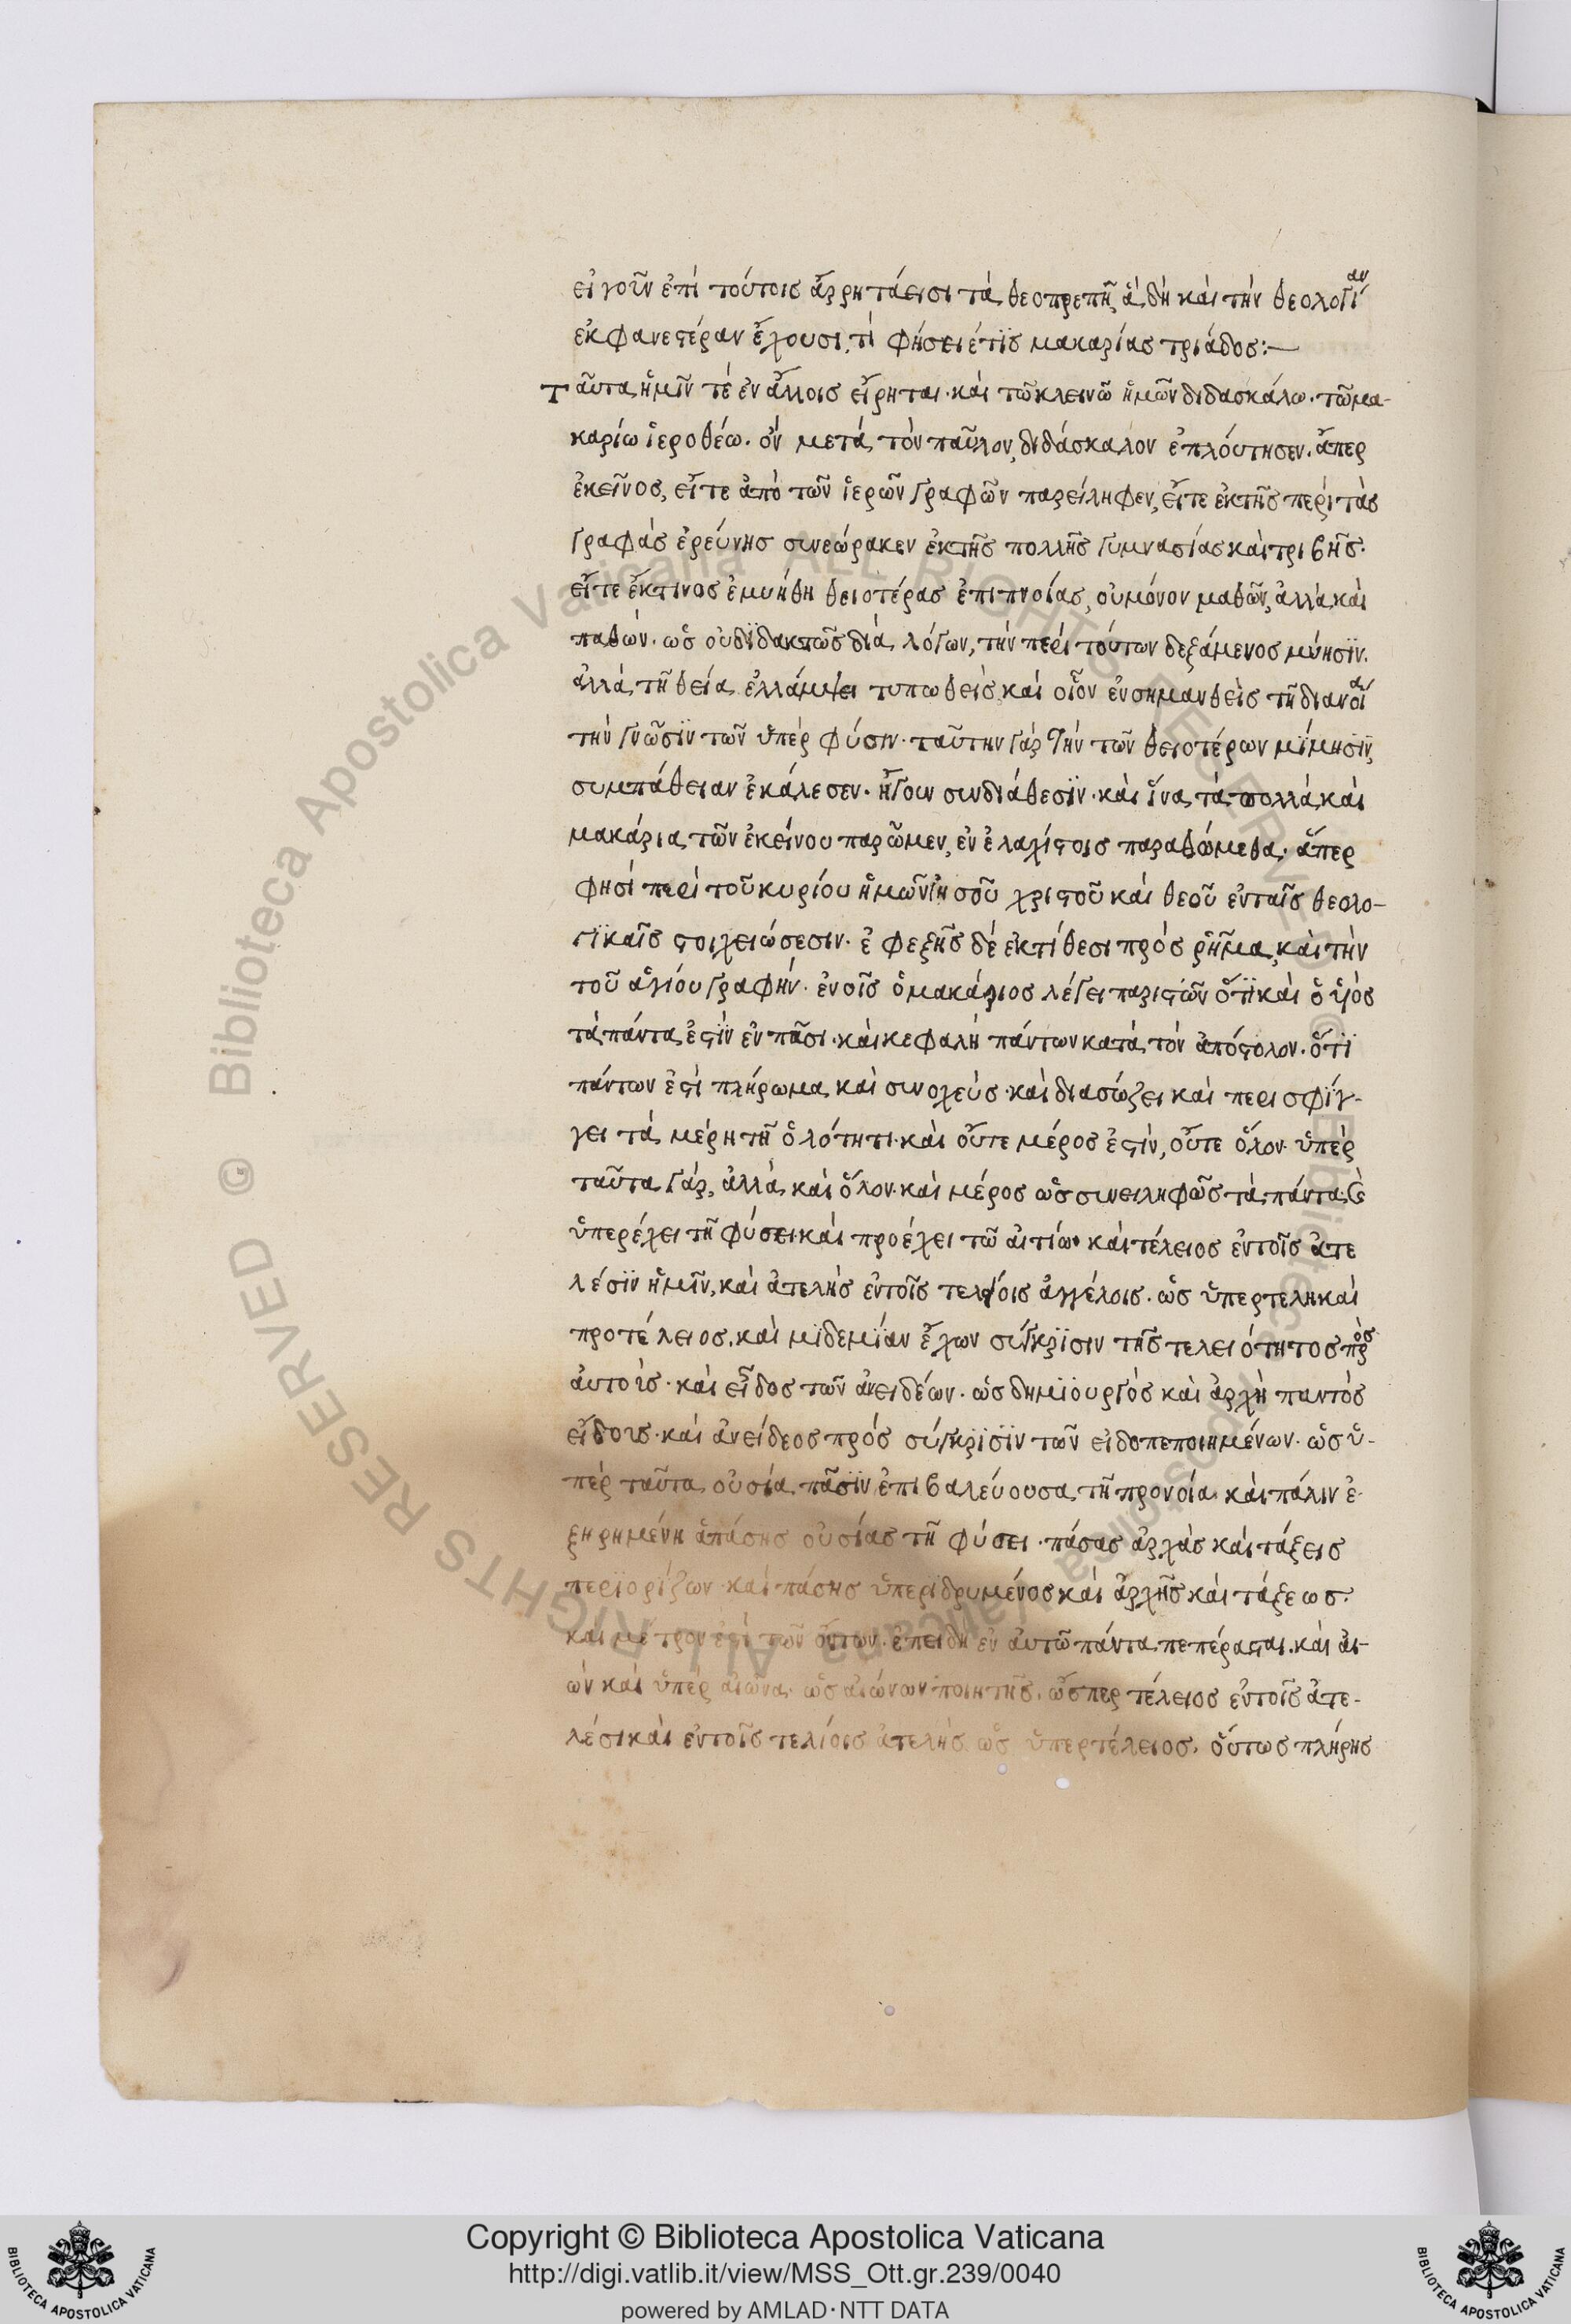 εἰ γοῦν ἐπὶ τούτοις ἄρρητά εἰσι τὰ θεοπρεπῆ, ἃ δὴ καὶ τὴν θεολογίαν
ἐκφανεστέραν ἔχουσι, τί φήσειέ τις μακαρίας τριάδος:—
Ταῦτα ἡμῖν τέ ἐν ἄλλοις εἴρηται· καὶ τῶ κλεινῶ ἡμῶν διδασκάλω· τῶ μα-
καρίω ἱεροθέω· ὃν μετὰ τὸν παῦλον, διδάσκαλον ἐπλούτησεν· ἅπερ
ἐκεῖνος, εἴτε ἀπὸ τῶν ἱερῶν γραφῶν παρείληφεν, εἴτε ἐκ τῆς περὶ τὰς
γραφὰς ἐρεύνης συνεώρακεν ἐκ τῆς πολλῆς γυμνασίας καὶ τριβῆς·
εἴτε ἔκ τινος ἐμυήθη θειοτέρας ἐπιπνοίας, οὐ μόνον μαθῶν, ἀλλὰ καὶ
παθών· ὡς οὐ διδακτῶς διὰ λόγων, τὴν περὶ τούτων δεξάμενος μύησϊν·
ἀλλὰ τῆ θεία ἐλλάμψει τυπωθεὶς καὶ οἷον ἐνσημανθεὶς τῆ διανοία
τὴν γνῶσϊν τῶν ὑπὲρ φύσιν· ταῦτην γὰρ τὴν τῶν θειοτέρων μΐμησϊν,
συμπάθειαν ἐκάλεσεν· ἤγουν συνδιάθεσϊν· καὶ ἵνα τὰ πολλὰ καὶ
μακάρια τῶν ἐκείνου παρῶμεν, ἐν ἐλαχίστοις παραθώμεθα· ἅπερ
φησὶ περὶ τοῦ κυρίου ἡμῶν ἰησοῦ χριστοῦ καὶ θεοῦ ἐν ταῖς θεολο-
γϊκαῖς στοιχειώσεσιν· ἐφεξῆς δὲ ἐκτίθεσι πρὸς ῥῆμα, καὶ τὴν
τοῦ ἁγίου γραφήν· ἐν οἷς ὁ μακάριος λέγει παριστῶν ὅτϊ καὶ ὁ ὑιὸς
τὰ πάντα ἐστϊν ἐν πᾶσι· καὶ κεφαλὴ πάντων κατὰ τὸν ἀπόστολον· ὅτϊ
πάντων ἐστὶ πλήρωμα καὶ συνοχεύς· καὶ διασώζει καὶ περισφίγ-
γει τὰ μέρη τῆ ὁλότητι· καὶ οὔτε μέρος ἐστὶν, οὔτε ὅλον· ὑπὲρ
ταῦτα γάρ, ἀλλὰ καὶ ὅλον· καὶ μέρος ὡς συνειληφῶς τὰ πάντα· καὶ
ὑπερέχει τῆ φύσει καὶ προέχει τῶ αἰτίω· καὶ τέλειος ἐν τοῖς ἀτε
λέσϊν ἡμῖν, καὶ ἀτελὴς ἐν τοῖς τελείοις ἀγγέλοις· ὡς ὑπερτελὴ καὶ
προτέλειος, καὶ μϊδεμΐαν ἔχων σύγκρϊσιν τῆς τελειότητος πρὸς
αὐτούς· καὶ εἶδος τῶν ἀνειδέων· ὡς δημϊουργὸς καὶ ἀρχὴ παντὸς
εἴδους· καὶ ἀνείδεος πρὸς σύγκρϊσϊν τῶν εἰδοπεποιημένων· ὡς ὑ-
πὲρ ταῦτα οὐσία πᾶσϊν ἐπιβαλεύουσα τῆ προνοία· καὶ πάλιν ἐ-
ξηρημένη ἁπάσης οὐσίας τῆ φύσει· πάσας ἀρχὰς καὶ τάξεις
περϊορίζων· καὶ πάσης ὑπερϊδρυμένος καὶ ἀρχῆς καὶ τάξεως·
καὶ μέτρον ἐστὶ τῶν ὄντων· ἐπειδὴ ἐν ἀυτῶ πάντα πεπέρασται· καὶ ἀι-
ὼν καὶ ὑπὲρ αἰῶνα· ὡς αἰώνων ποιητῆς· ὥσπερ τέλειος ἐν τοῖς ἀτε-
λέσι καὶ ἐν τοῖς τελίοις ἀτελὴς ὡς ὑπερτέλειος, οὕτως πλήρης
Copyright © Biblioteca Apostolica Vaticana
http://digi.vatlib.it/view/MSS_Ott.gr.239/0040
powered by AMLAD·NTT DATA